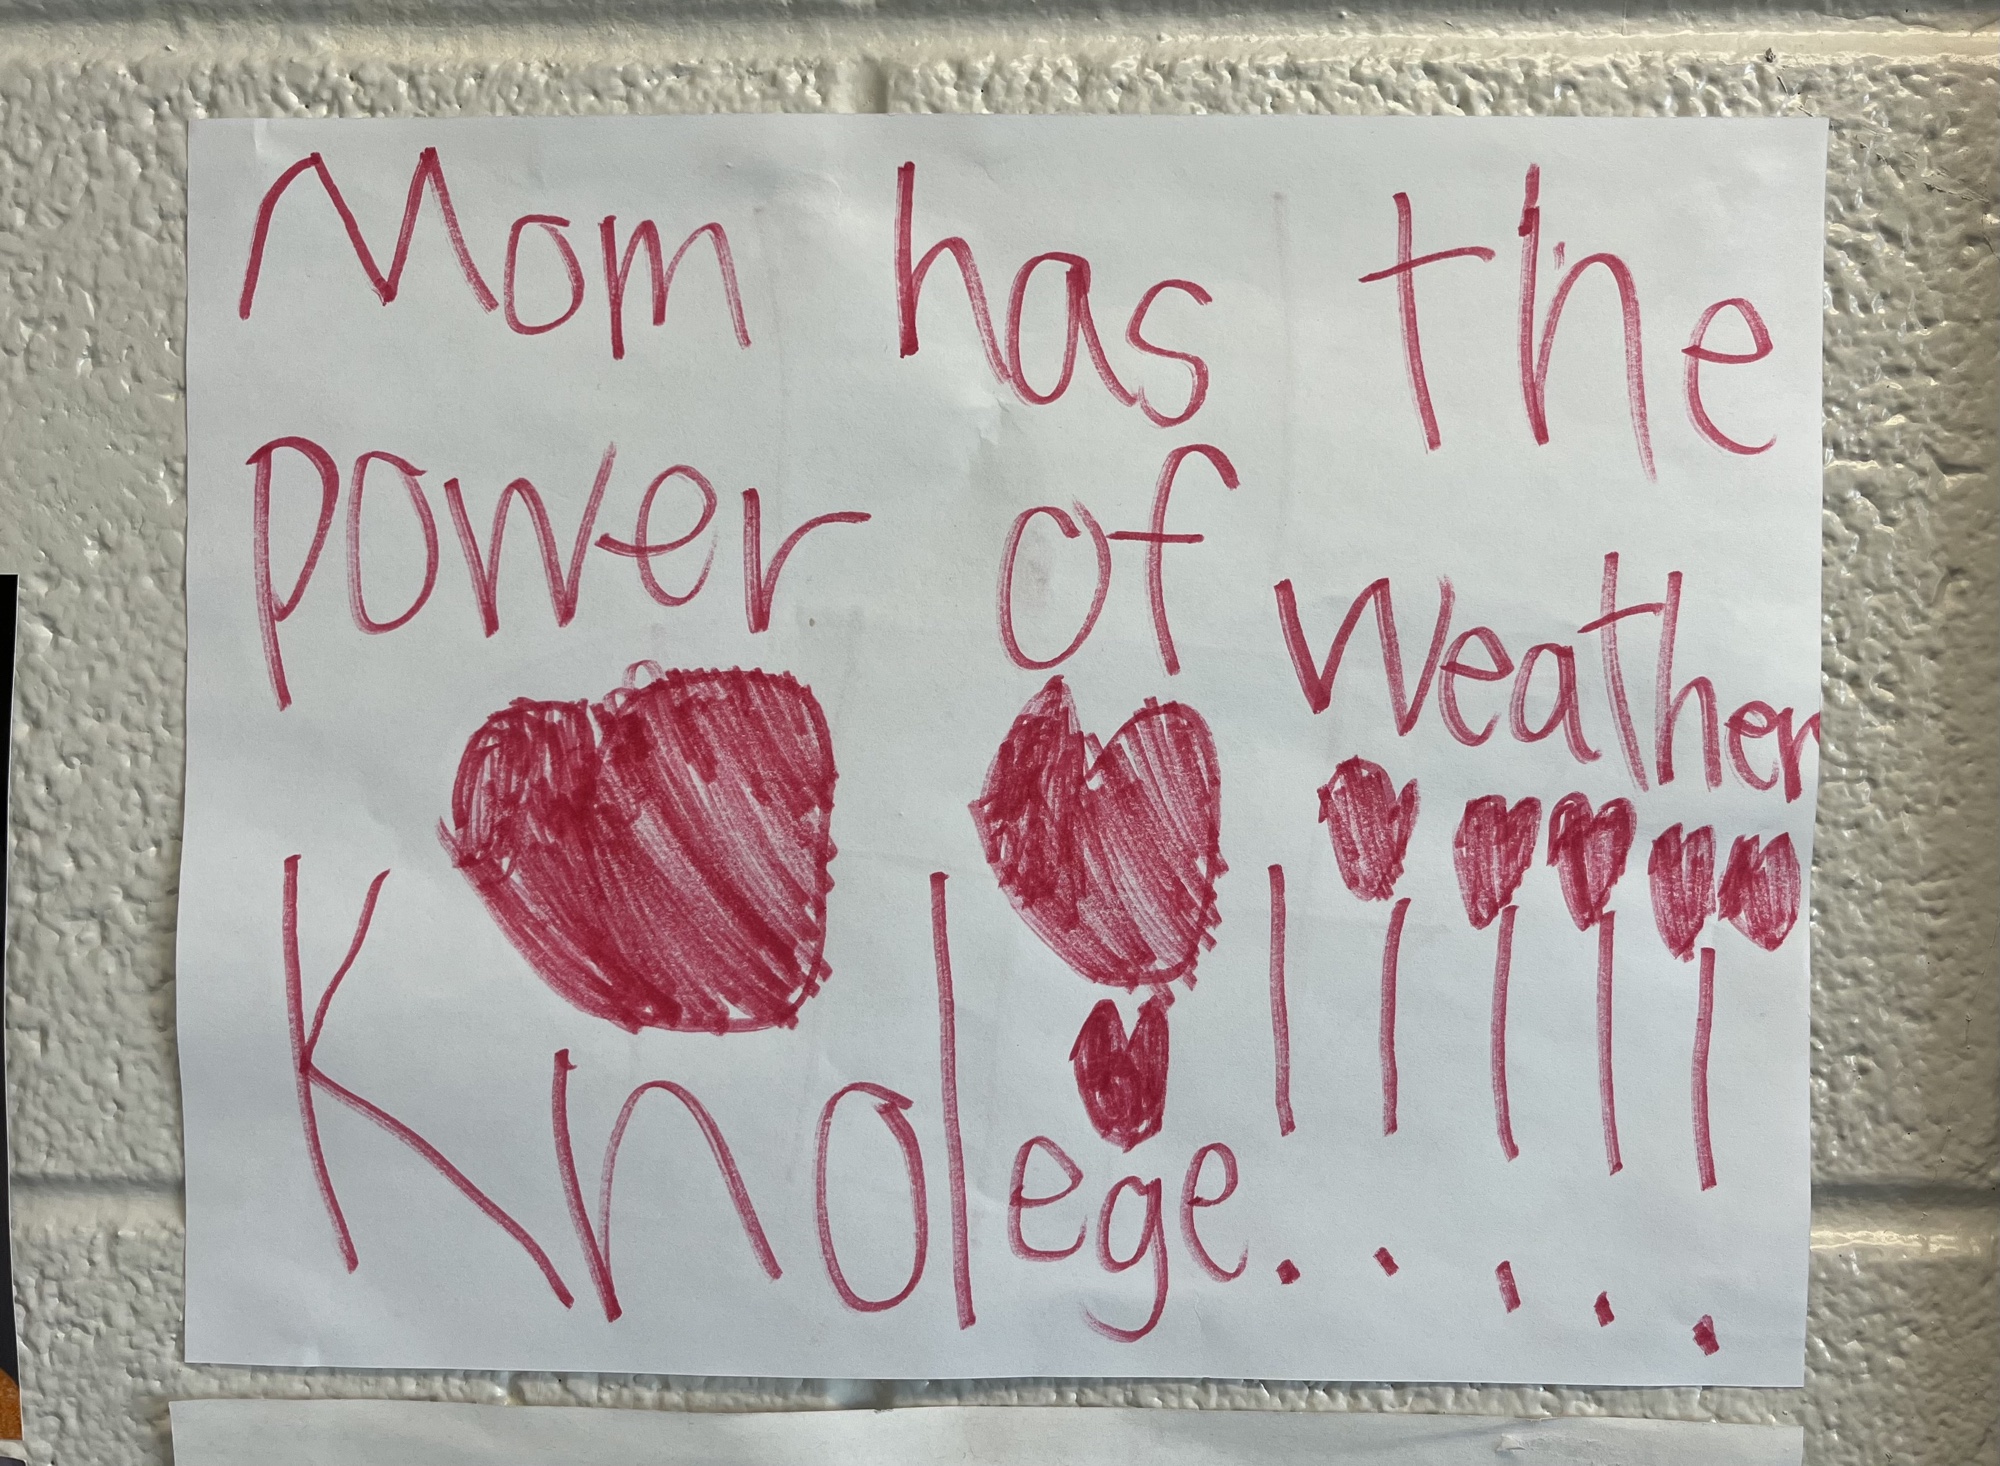 Mom has the
power of
weather
Knolege!!!!!